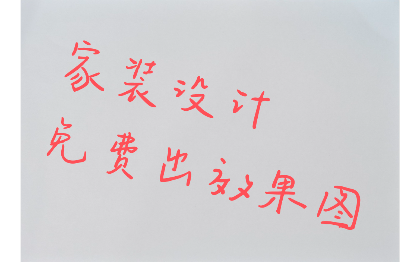 家装设计
免费出效果图